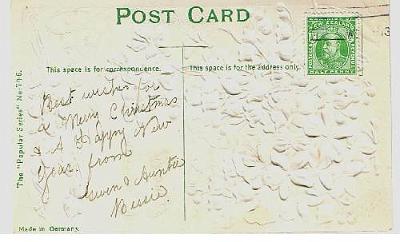 POST CARD
NEW ZEALAND
HALFPENNY
This space is for correspondence.
This space is for the address only.
The "Popular Series" No. 716.
Best wishes for
a Merry Christmas
& A Happy New
Year from
Gwen & Auntie
Bessie.
Made in Germany.